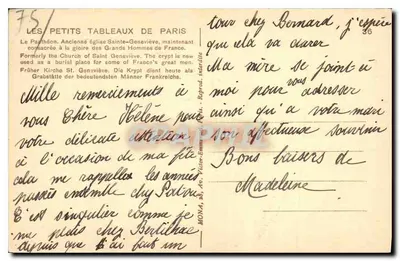 75/
LES PETITS TABLEAUX DE PARIS
Le Panthéon. Ancienne église Sainte-Geneviève, maintenant
consacrée à la gloire des Grands Hommes de France.
Formerly the Church of Saint Geneviève. The crypt is now
used as a burial place for some of France's great men.
Früher Kirche St. Geneviève. Die Krypt dient heute als
Grabstätte der bedeutendsten Männer Frankreichs.
Mille remerciements à
vous Chère Hélène pour
votre délicate attention
à l'occasion de ma fête
cela me rappelle les années
passées ensemble chez
Il est singulier comme je
me plais chez
depuis que j'ai fait un
36
tour chez Bernard, j'espère
que cela va durer.
Ma mère se joint à
moi pour vous adresser
ainsi qu'à votre mari
son affectueux souvenir
Bons baisers de
Madeleine